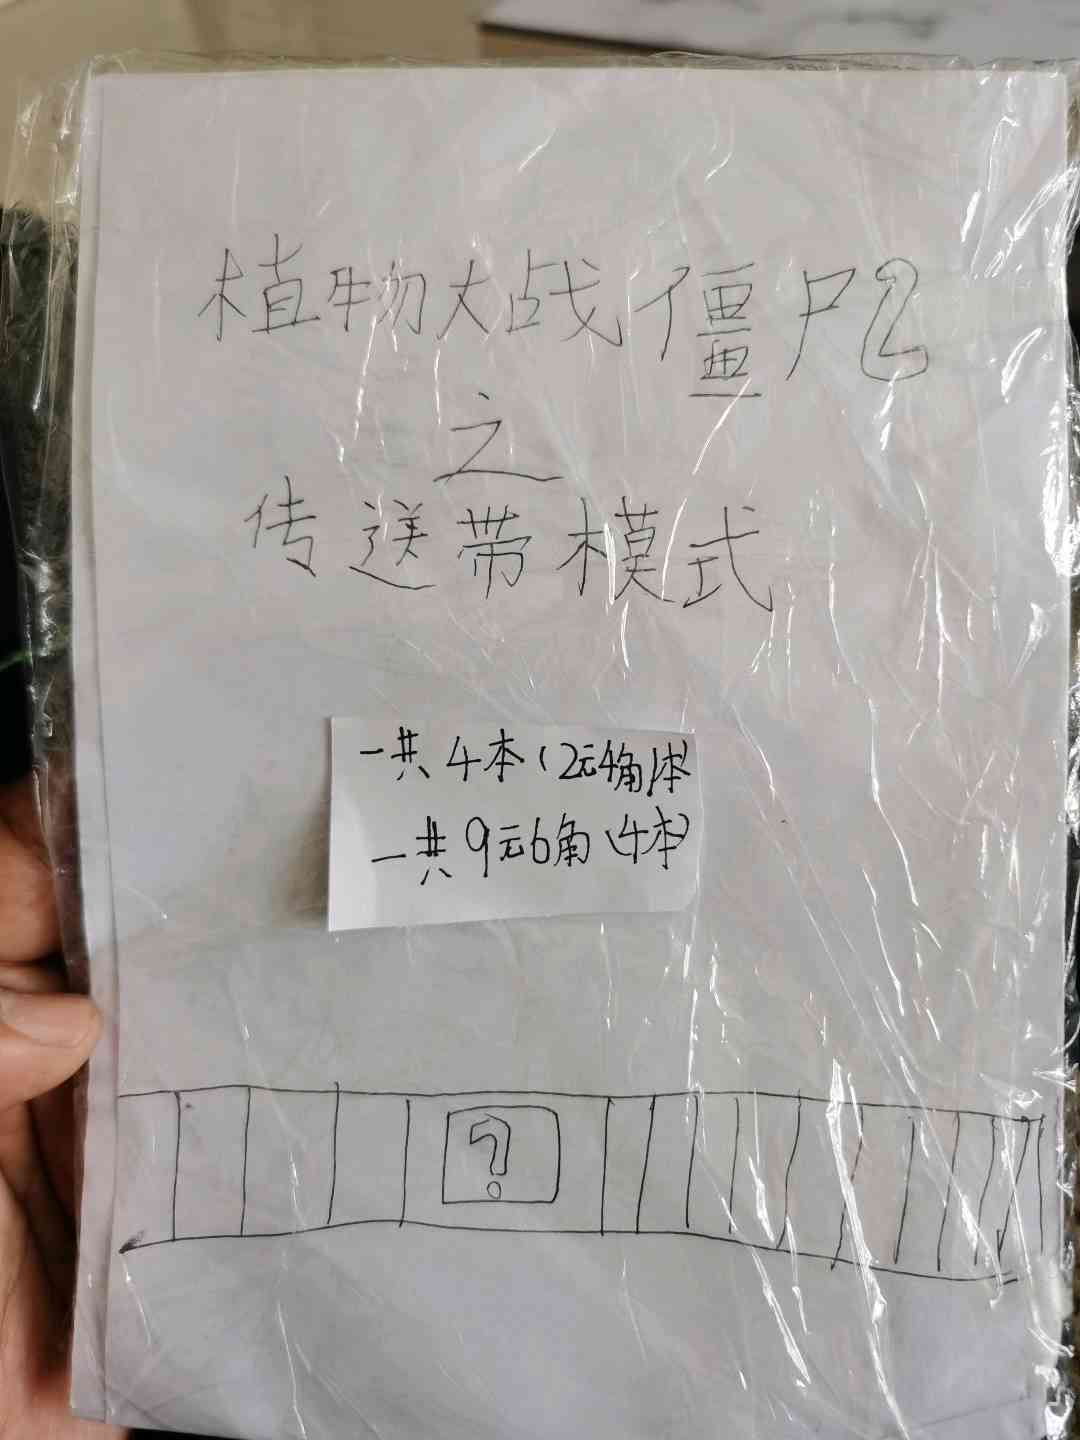 植物大战僵尸2
之
传送带模式
一共4本(2元4角1本)
一共9元6角(4本)
?